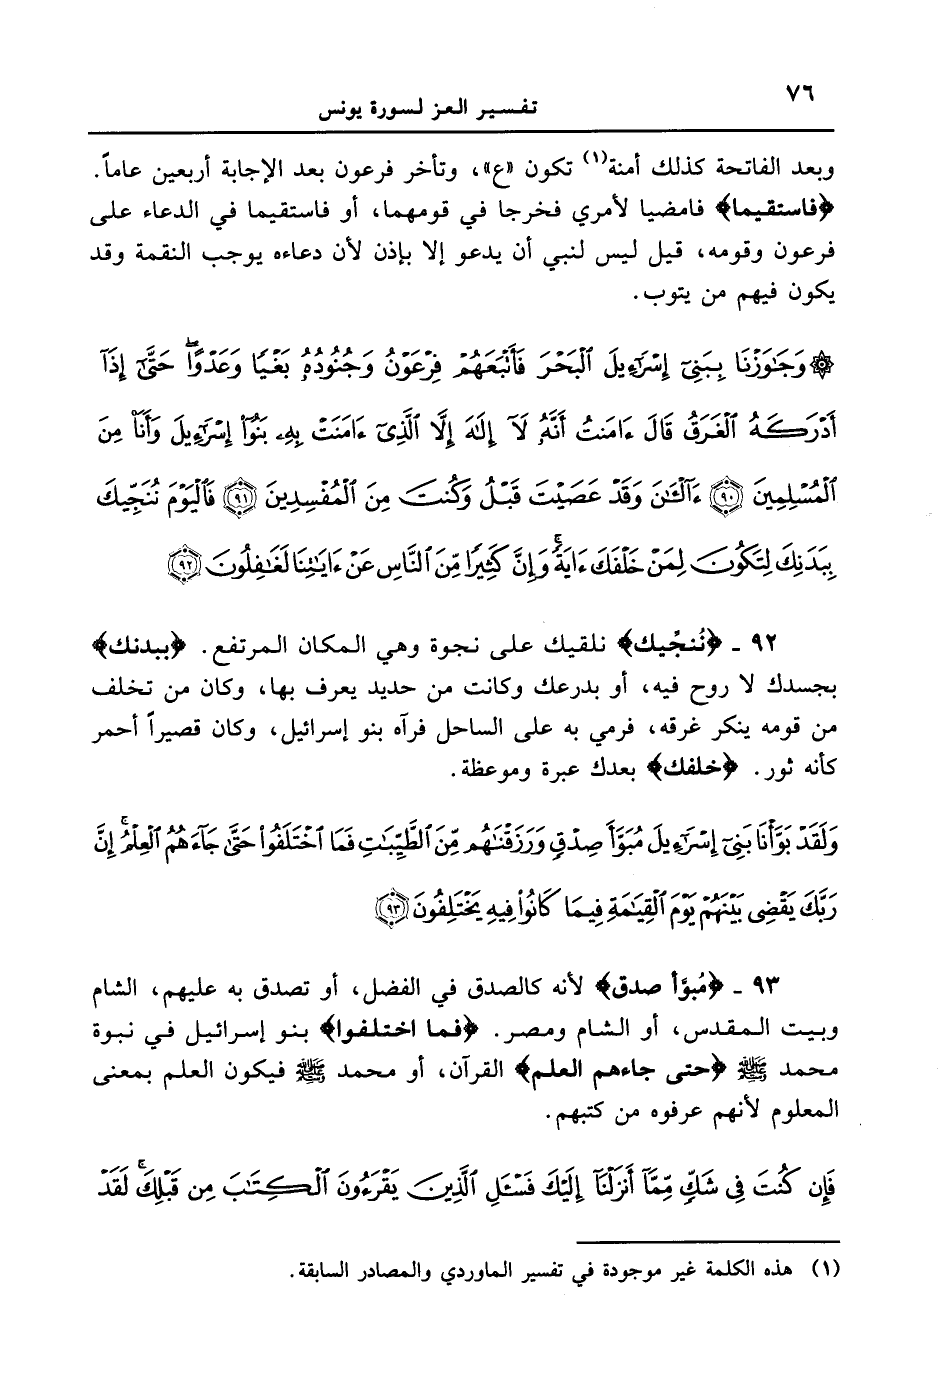 ٧٦
تفسير العز لسورة يونس
وبعد الفاتحة كذلك أمنة(١) تكون «ع»، وتأخر فرعون بعد الإجابة أربعين عاماً.
﴿فاستقيما﴾ فامضيا لأمري فخرجا في قومهما، أو فاستقيما في الدعاء على
فرعون وقومه، قيل ليس لنبي أن يدعو إلا بإذن لأن دعاءه يوجب النقمة وقد
يكون فيهم من يتوب.
۞ وَجَٰوَزْنَا بِبَنِىٓ إِسْرَٰٓءِيلَ ٱلْبَحْرَ فَأَتْبَعَهُمْ فِرْعَوْنُ وَجُنُودُهُۥ بَغْيًا وَعَدْوًا ۖ حَتَّىٰٓ إِذَآ
أَدْرَكَهُ ٱلْغَرَقُ قَالَ ءَامَنتُ أَنَّهُۥ لَآ إِلَٰهَ إِلَّا ٱلَّذِىٓ ءَامَنَتْ بِهِۦ بَنُوٓا۟ إِسْرَٰٓءِيلَ وَأَنَا۠ مِنَ
ٱلْمُسْلِمِينَ ٩٠ ءَآلْـَٰٔنَ وَقَدْ عَصَيْتَ قَبْلُ وَكُنتَ مِنَ ٱلْمُفْسِدِينَ ٩١ فَٱلْيَوْمَ نُنَجِّيكَ
بِبَدَنِكَ لِتَكُونَ لِمَنْ خَلْفَكَ ءَايَةً ۚ وَإِنَّ كَثِيرًا مِّنَ ٱلنَّاسِ عَنْ ءَايَٰتِنَا لَغَٰفِلُونَ ٩٢
٩٢ ـ ﴿نُنجِّيك﴾ نلقيك على نجوة وهي المكان المرتفع. ﴿ببدنك﴾
بجسدك لا روح فيه، أو بدرعك وكانت من حديد يعرف بها، وكان من تخلف
من قومه ينكر غرقه، فرمي به على الساحل فرآه بنو إسرائيل، وكان قصيراً أحمر
كأنه ثور. ﴿خلفك﴾ بعدك عبرة وموعظة.
وَلَقَدْ بَوَّأْنَا بَنِىٓ إِسْرَٰٓءِيلَ مُبَوَّأَ صِدْقٍ وَرَزَقْنَٰهُم مِّنَ ٱلطَّيِّبَٰتِ فَمَا ٱخْتَلَفُوا۟ حَتَّىٰ جَآءَهُمُ ٱلْعِلْمُ ۚ إِنَّ
رَبَّكَ يَقْضِى بَيْنَهُمْ يَوْمَ ٱلْقِيَٰمَةِ فِيمَا كَانُوا۟ فِيهِ يَخْتَلِفُونَ ٩٣
٩٣ ـ ﴿مُبوَّأ صدق﴾ لأنه كالصدق في الفضل، أو تصدق به عليهم، الشام
وبيت المقدس، أو الشام ومصر. ﴿فما اختلفوا﴾ بنو إسرائيل في نبوة
محمد ﷺ ﴿حتى جاءهم العلم﴾ القرآن، أو محمد ﷺ فيكون العلم بمعنى
المعلوم لأنهم عرفوه من كتبهم.
فَإِن كُنتَ فِى شَكٍّ مِّمَّآ أَنزَلْنَآ إِلَيْكَ فَسْـَٔلِ ٱلَّذِينَ يَقْرَءُونَ ٱلْكِتَٰبَ مِن قَبْلِكَ ۚ لَقَدْ
(١) هذه الكلمة غير موجودة في تفسير الماوردي والمصادر السابقة.